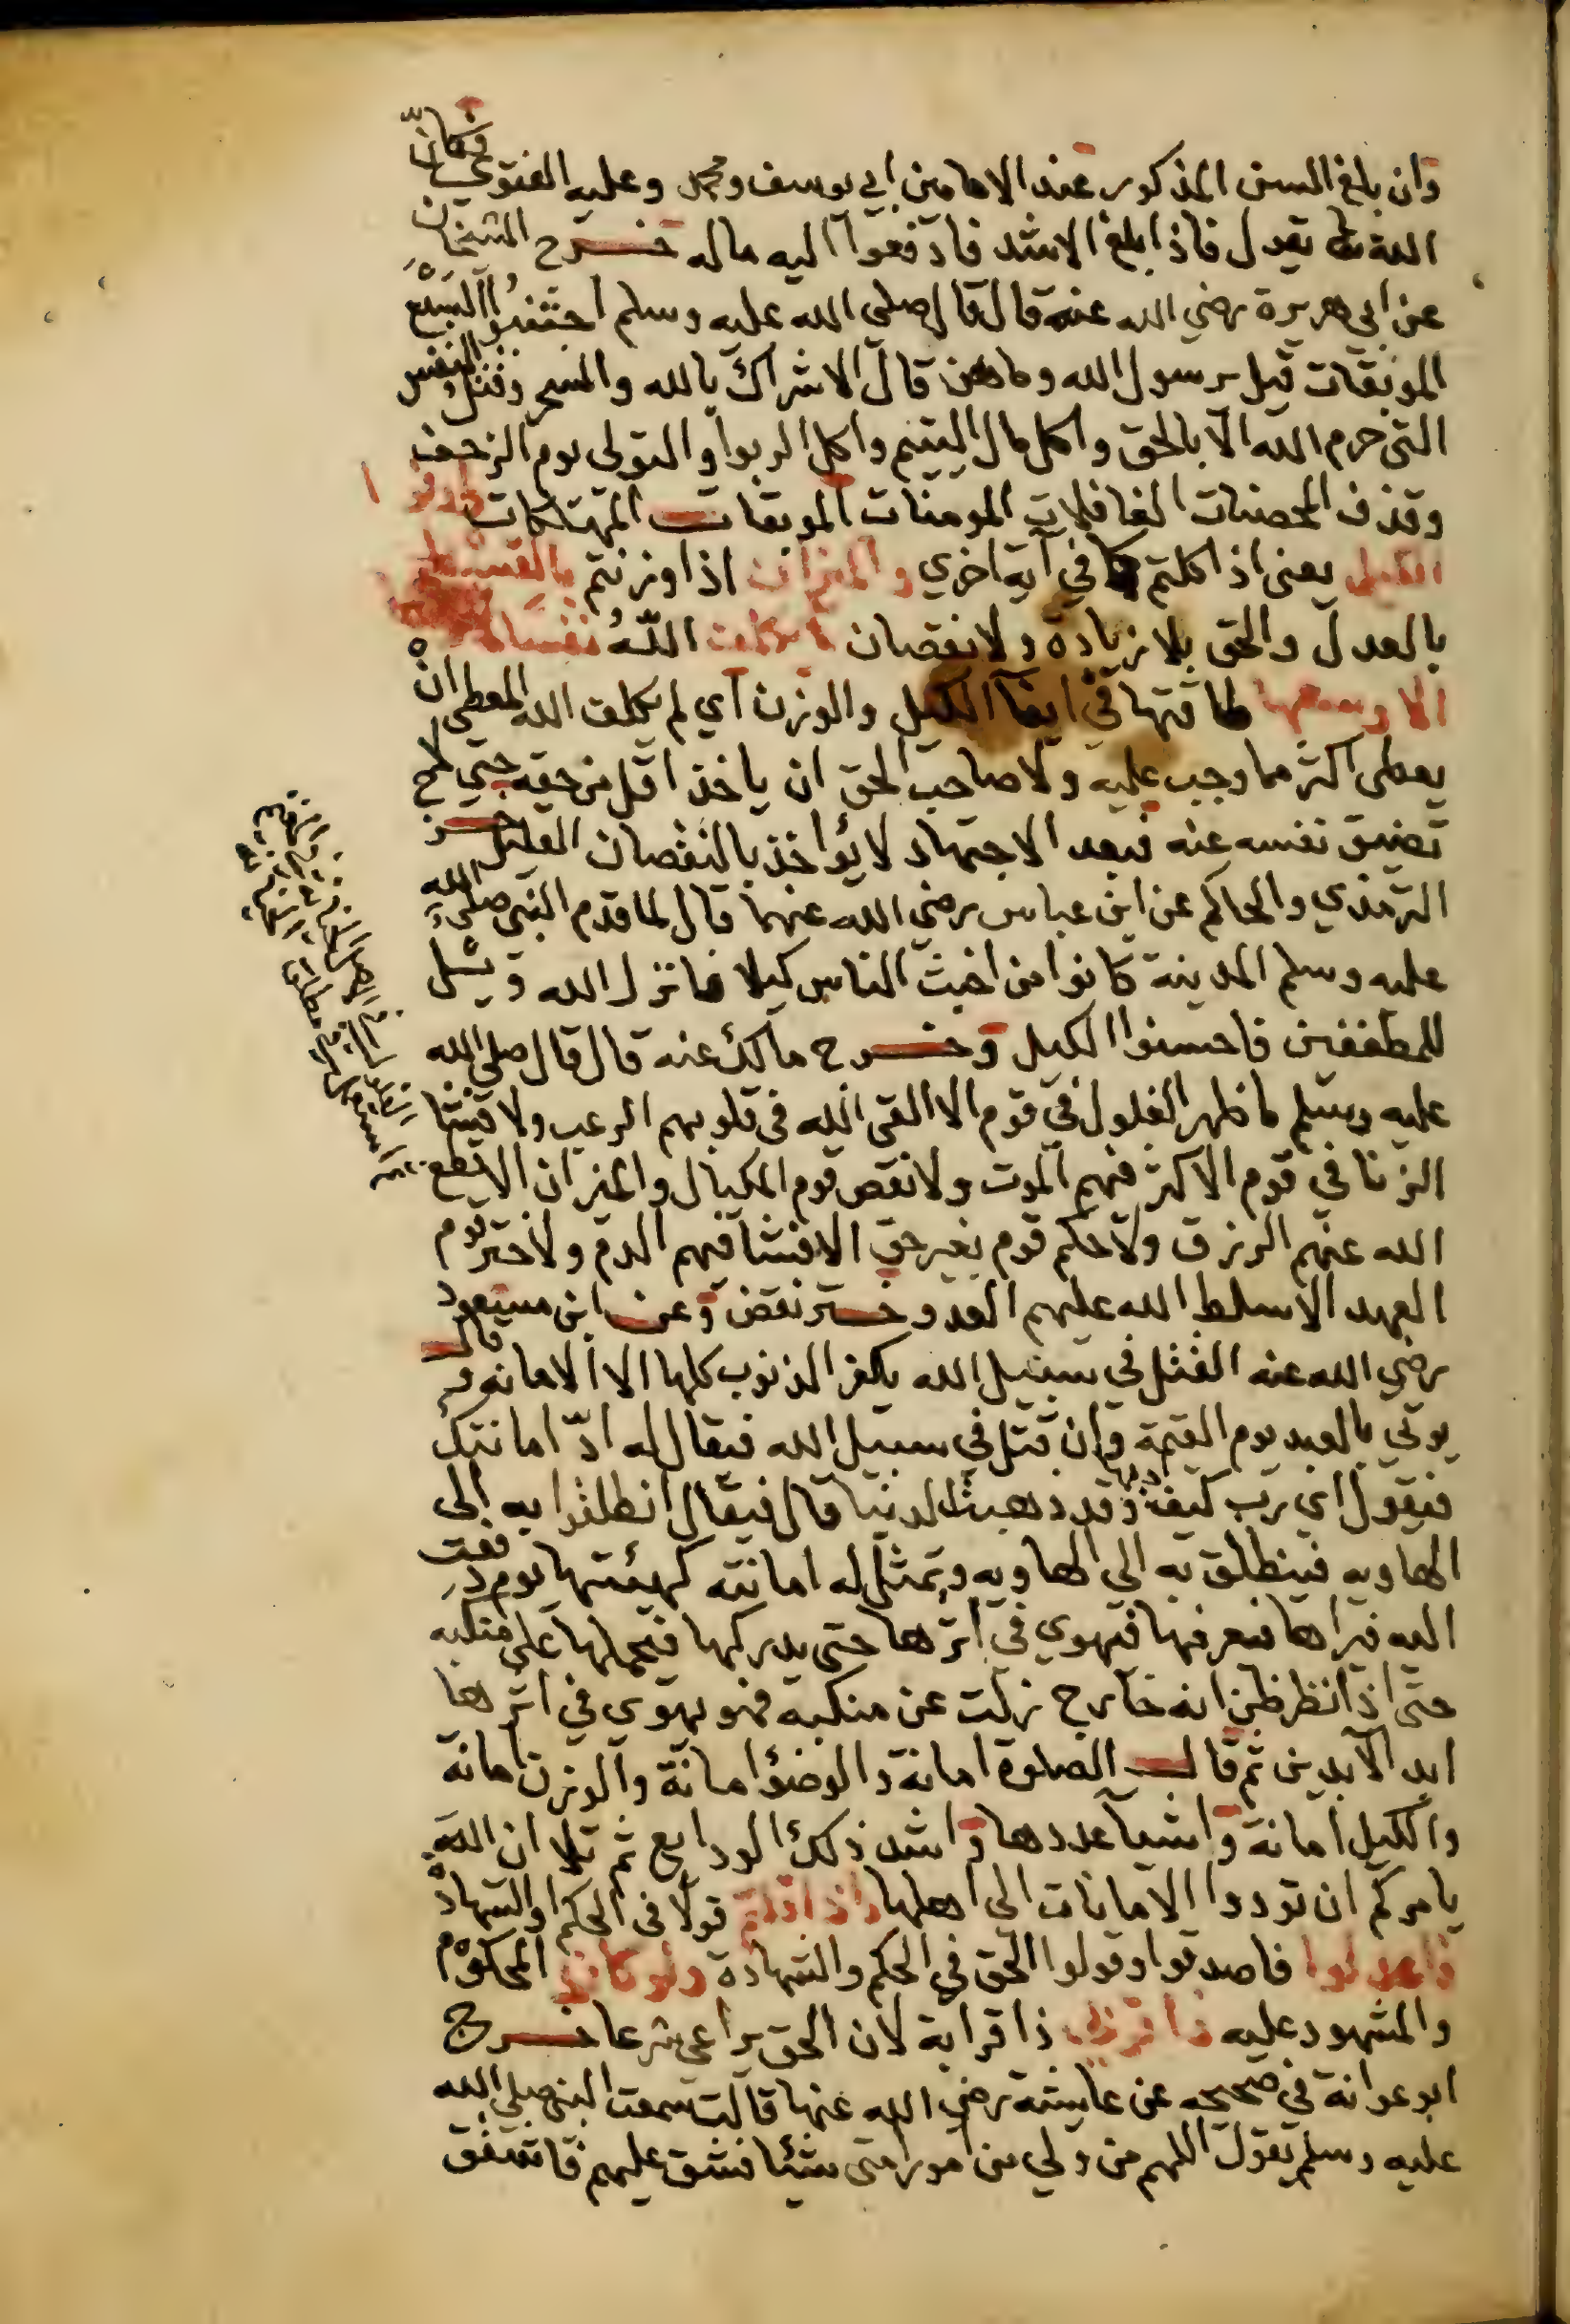 وان بلغ السن المذكور عند الامامين ابي يوسف ومحمد وعليه الفتوي فكانّ
الله تعالى يقول فاذا بلغ الاشد فادفعوا اليه ماله خرج الشيخان
عن ابي هريرة رضي الله عنه قال قال صلى الله عليه وسلم اجتنبوا السبع
الموبقات قيل يرسول الله وما هن قال الاشراك بالله والسحر وقتل النفس
التي حرم الله الا بالحق واكل مال اليتيم واكل الربوا والتولي يوم الزحف
وقذف المحصنات الغافلات المومنات الموبقات المهتلكات واوفوا
الكيل يعني اذا كلتم كما في آية اخري والميزان اذا وزنتم بالقسط
بالعدل والحق بلا زيادة ولا نقصان لا يكلف اللّهُ نفسا
الا وسعها طاقتها في ايفآ الكيل والوزن اي لم يكلف الله المعطي ان
يعطي اكثر مما وجب عليه ولا صاحب الحق ان ياخذ اقل من حقه حتي لا
تضيق نفسه عنه فبعد الاجتهاد لا يؤاخذ بالنقصان القليل خرج
الترمذي والحاكم عن ابن عباس رضي الله عنهما قال لما قدم النبي صلي الله
عليه وسلم المدينة كانوا من اخبث الناس كيلا فانزل الله ويل
للمطففين فاحسنوا الكيل وخرج مالك عنه قال قال صلي الله
عليه وسلم ما ظهر الغلول في قوم الا القي الله في قلوبهم الرعب ولا فشا
الزنا في قوم الا كثر فيهم الموت ولا نقص قوم المكيال والميزان الا قطع
الله عنهم الرزق ولا حكم قوم بغير حق الا فشا فيهم الدم ولا ختر قوم
العهد الا سلط الله عليهم العدو ختر نقض وعن ابن مسعود
رضي الله عنه القتل في سبيل الله يكفر الذنوب كلها الا الامانه قال
يوتي بالعبد يوم القيمة وان قتل في سبيل الله فيقال له ادّ امانتك
فيقول اي رب كيف وقد ذهبت الدنيا قال فيقال انطلقوا به الى
الهاويه فينطلق به الي الهاويه وتمثل له امانته كهيئتها يوم دفعت
اليه فيراها فيعرفها فيهوي في اثرها حتى يدركها فيحملها على منكبه
حتى اذا نظر ظن انه خارج زلت عن منكبه فهو يهوي في اثرها
ابد الآبدين ثم قال الصلوة امانة والوضؤ امانة والوزن امانة
والكيل امانة واشيآ عددها واشد ذلك الودايع ثم تلا ان الله
يامركم ان تودوا الامانات الى اهلها واذا قلتم قولا في الحكم والشهادة
فاعدلوا فاصدقوا وقولوا الحق في الحكم والشهادة ولو كان المحكوم
والمشهود عليه ذا قربى ذا قرابة لان الحق يراعي شرعا خرج
ابو عوانة في صحيحه عن عايشة رضي الله عنها قالت سمعت النبي صلي الله
عليه وسلم يقول اللهم من ولي من امور امتي شيئا فشق عليهم فاشقق